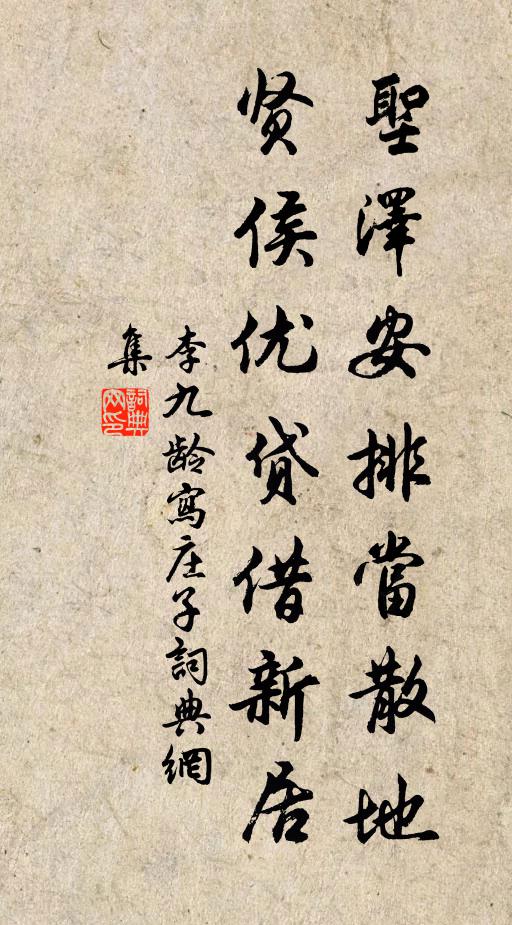 聖澤安排當散地
贤侯优贷借新居
李九龄寫庄子詞典網
集
詞典網印